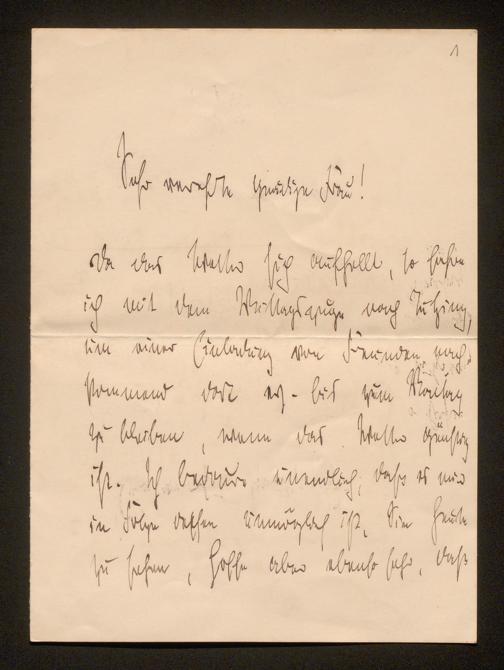 1
Sehr verehrte gnädige Frau!
Da das Wetter sich aufhellt, so fahre
ich mit dem Mittagszuge nach Tutzing,
um einer Einladung von Freunden nach-
kommend dort bis zum Montag
zu bleiben, wenn das Wetter günstig
ist. Ich bedaure unendlich, daß es mir
in Folge dessen unmöglich ist, Sie heute
zu sehen, hoffe aber ebenso sehr, daß